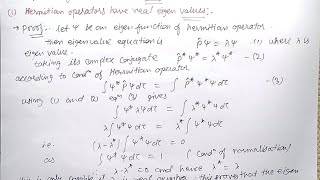 (1) Hermitian operators have real eigen values:-
→ Proof:- Let Ψ be an eigen function of Hermitian operator
then eigen value equation is P̂Ψ = λΨ (1) where λ is
eigen value.
taking its complex conjugate P̂*Ψ* = λ*Ψ* - (2)
according to Condn of Hermitian operator
∫Ψ* P̂Ψ dτ = ∫ P̂*Ψ* Ψ dτ - (3)
using (1) and (2) eqn (3) gives
∫Ψ* λΨ dτ = ∫ λ*Ψ* Ψ dτ
λ∫Ψ*Ψ dτ = λ* ∫Ψ*Ψ dτ
i.e. (λ-λ*) ∫Ψ*Ψ dτ = 0
as ∫Ψ*Ψ dτ = 1 { Condn of normalisation}
λ-λ* = 0 and hence λ* = λ
is only possible this proves that the eigen